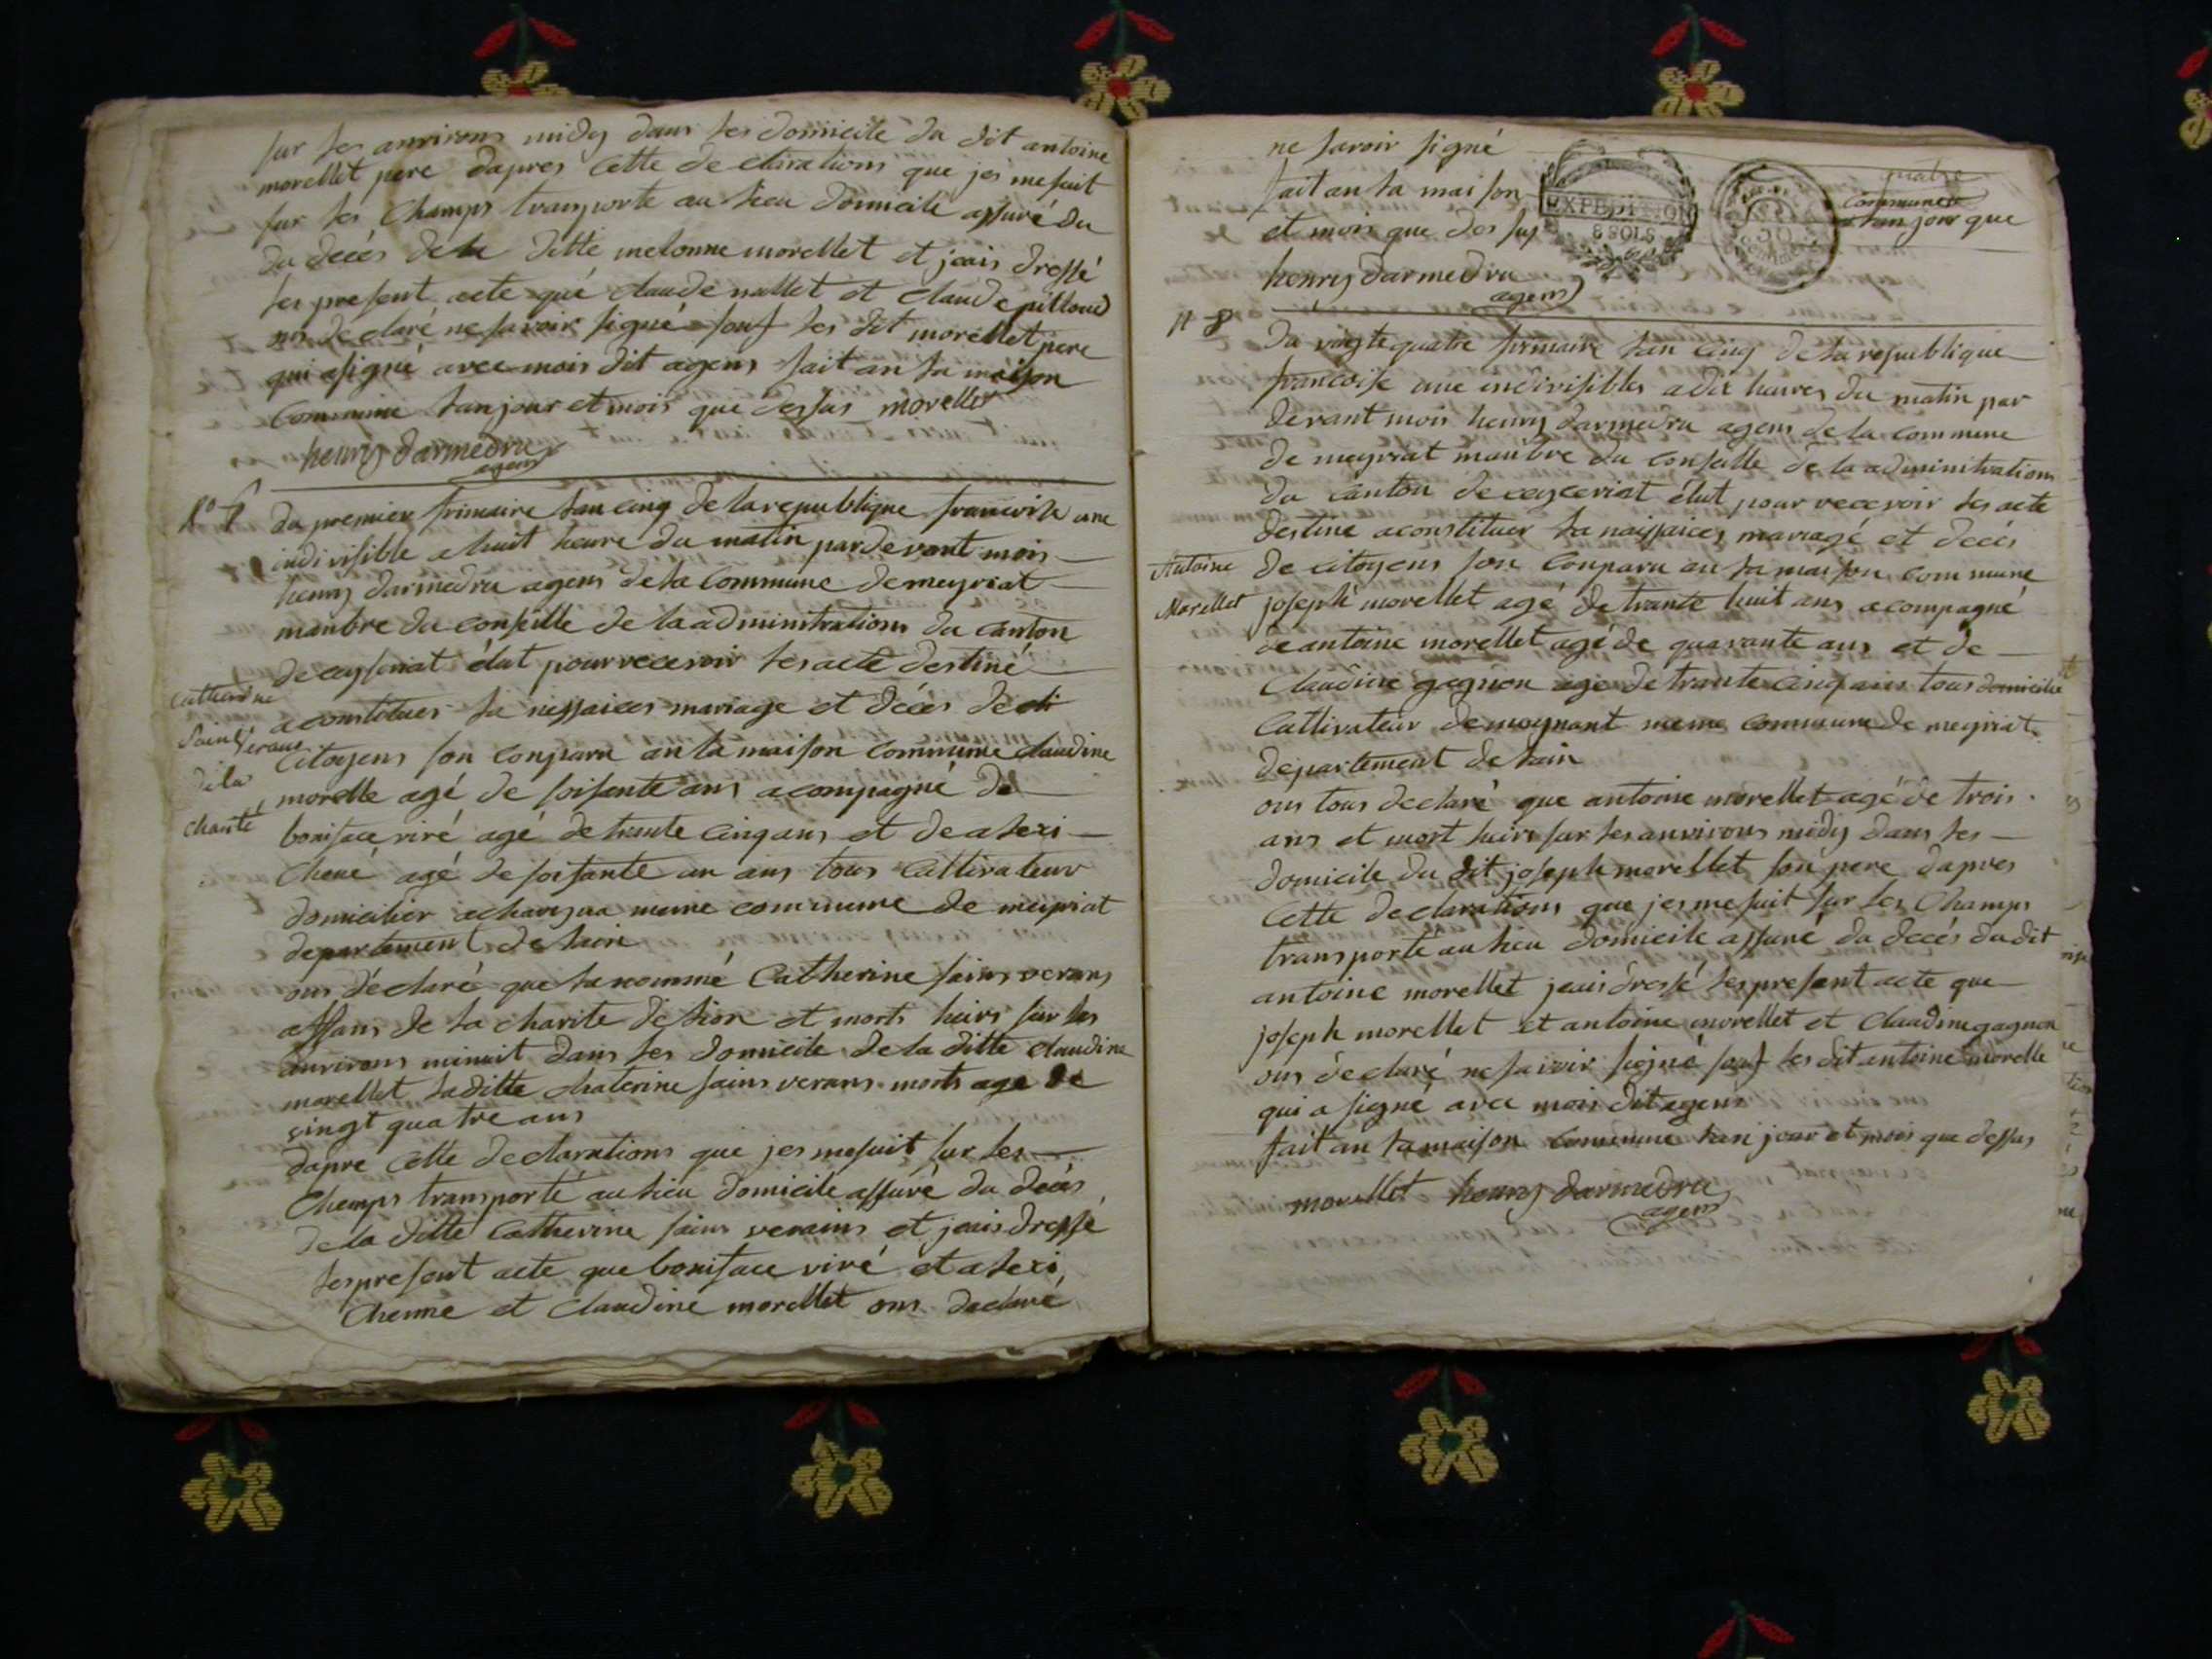 sur les anvirons midy dans les domicile du dit antoine
morellet pere dapres cette declarations que jes me suit
sur les Champs transporte au lieu domicile assuré du
du decés de la ditte melonne morellet et jeais dressé
les present acte que claude nallet et claude pilloud
ons declaré ne savoir signé souf les dit morellet pere
qui a signé avec mois dit agens fait an la maison
Commune lan jour et mois que dessus morellet
henry darmedru
agens
N° 7
du premier frimaire lan cinq de la republique francoise une
indivisible a huit heure du matin par devant mois
henry darmedru agens de la Commune de meyriat
manbre du conseille de la adminitrations du canton
de ceyseriat élut pour recevoir les acte destiné
Catherine
Saint Verans
de la
charité
a constituer la nessaices mariage et décés de di
Citoyens son conparu an la maison Commune claudine
morelle agé de soisante ans acompagné de
boniface viré agé de trante cinq ans et de alexi
Chené agé de soisante un ans tous Cultivateur
domicilier a meme commune de meyriat
departement de lain
ons déclaré que la nommé Catherine sains verans
affans de la charite de lion et morts hiers sur les
anvirons minuit dans les domicile de la ditte claudine
morellet la ditte chaterine sains verans morts age de
vingt quatre ans
dapre cette declarations que jes me suit sur les
Champs transporté au lieu domicile assuré du decés
de la ditte Catherine sains verains et jeais dressé
les present acte que boniface viré et alexi
Chenne et Claudine morellet ons declaré
ne savoir signé
fait an la maison quatre
Commune
lan jour que
et mois que des sus
EXPEDITION
8 SOLS
henry darmedru
agens
N 8
Du vingte quatre firmaire lan cinq de la republique
francoise une indivisibles a dix heures du matin par
devant mois henry darmedru agens de la commune
de meyriat manbre du conseille de la adminitrations
du canton de ceyceriat élut pour recevoir les acte
destine a constituer la naissaices mariagé et decés
Antoine
Morellet
de citoyens son Conparu an la maison commune
joseph morellet agé de trante huit ans acompagné
de antoine morellet agé de quarante ans et de
Claudine gagnon agé de trante cinq ans tous domicilié
Cultivateur de moynant meme commune de meyriat
departement de lain
ons tous declaré que antoine morellet agé de trois
ans et mort hiers sur les anvirons midy dans les
domicile du dit joseph morellet son pere dapres
Cette declarations que jes me suit sur les Champs
transporte au lieu domicile assuré du decés du dit
antoine morellet jeais dressé les present acte que
joseph morellet et antoine morellet et Claudine gagnon
ons déclaré ne savoir signé souf les dit antoine morelle
qui a signé avec mois dit agens
fait an la maison commune lan jour et mois que dessus
morellet henry darmedru
agens